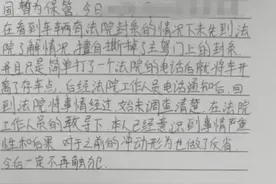 因暂为保管,今日
在看到车辆有法院封条的情况下未先到法
院了解情况,擅自撕掉了去驾门上的封条
并且只是简单打了个法院的电话后就将车开
离了存车点,后经法院工作人员电话通知后,回
到法院将事情经过如末调查清楚,在法院
工作人员的教导下本人已经意识到事情严重
性和后果,对于之前的冲动行为也做了反省
今后一定不再触犯.